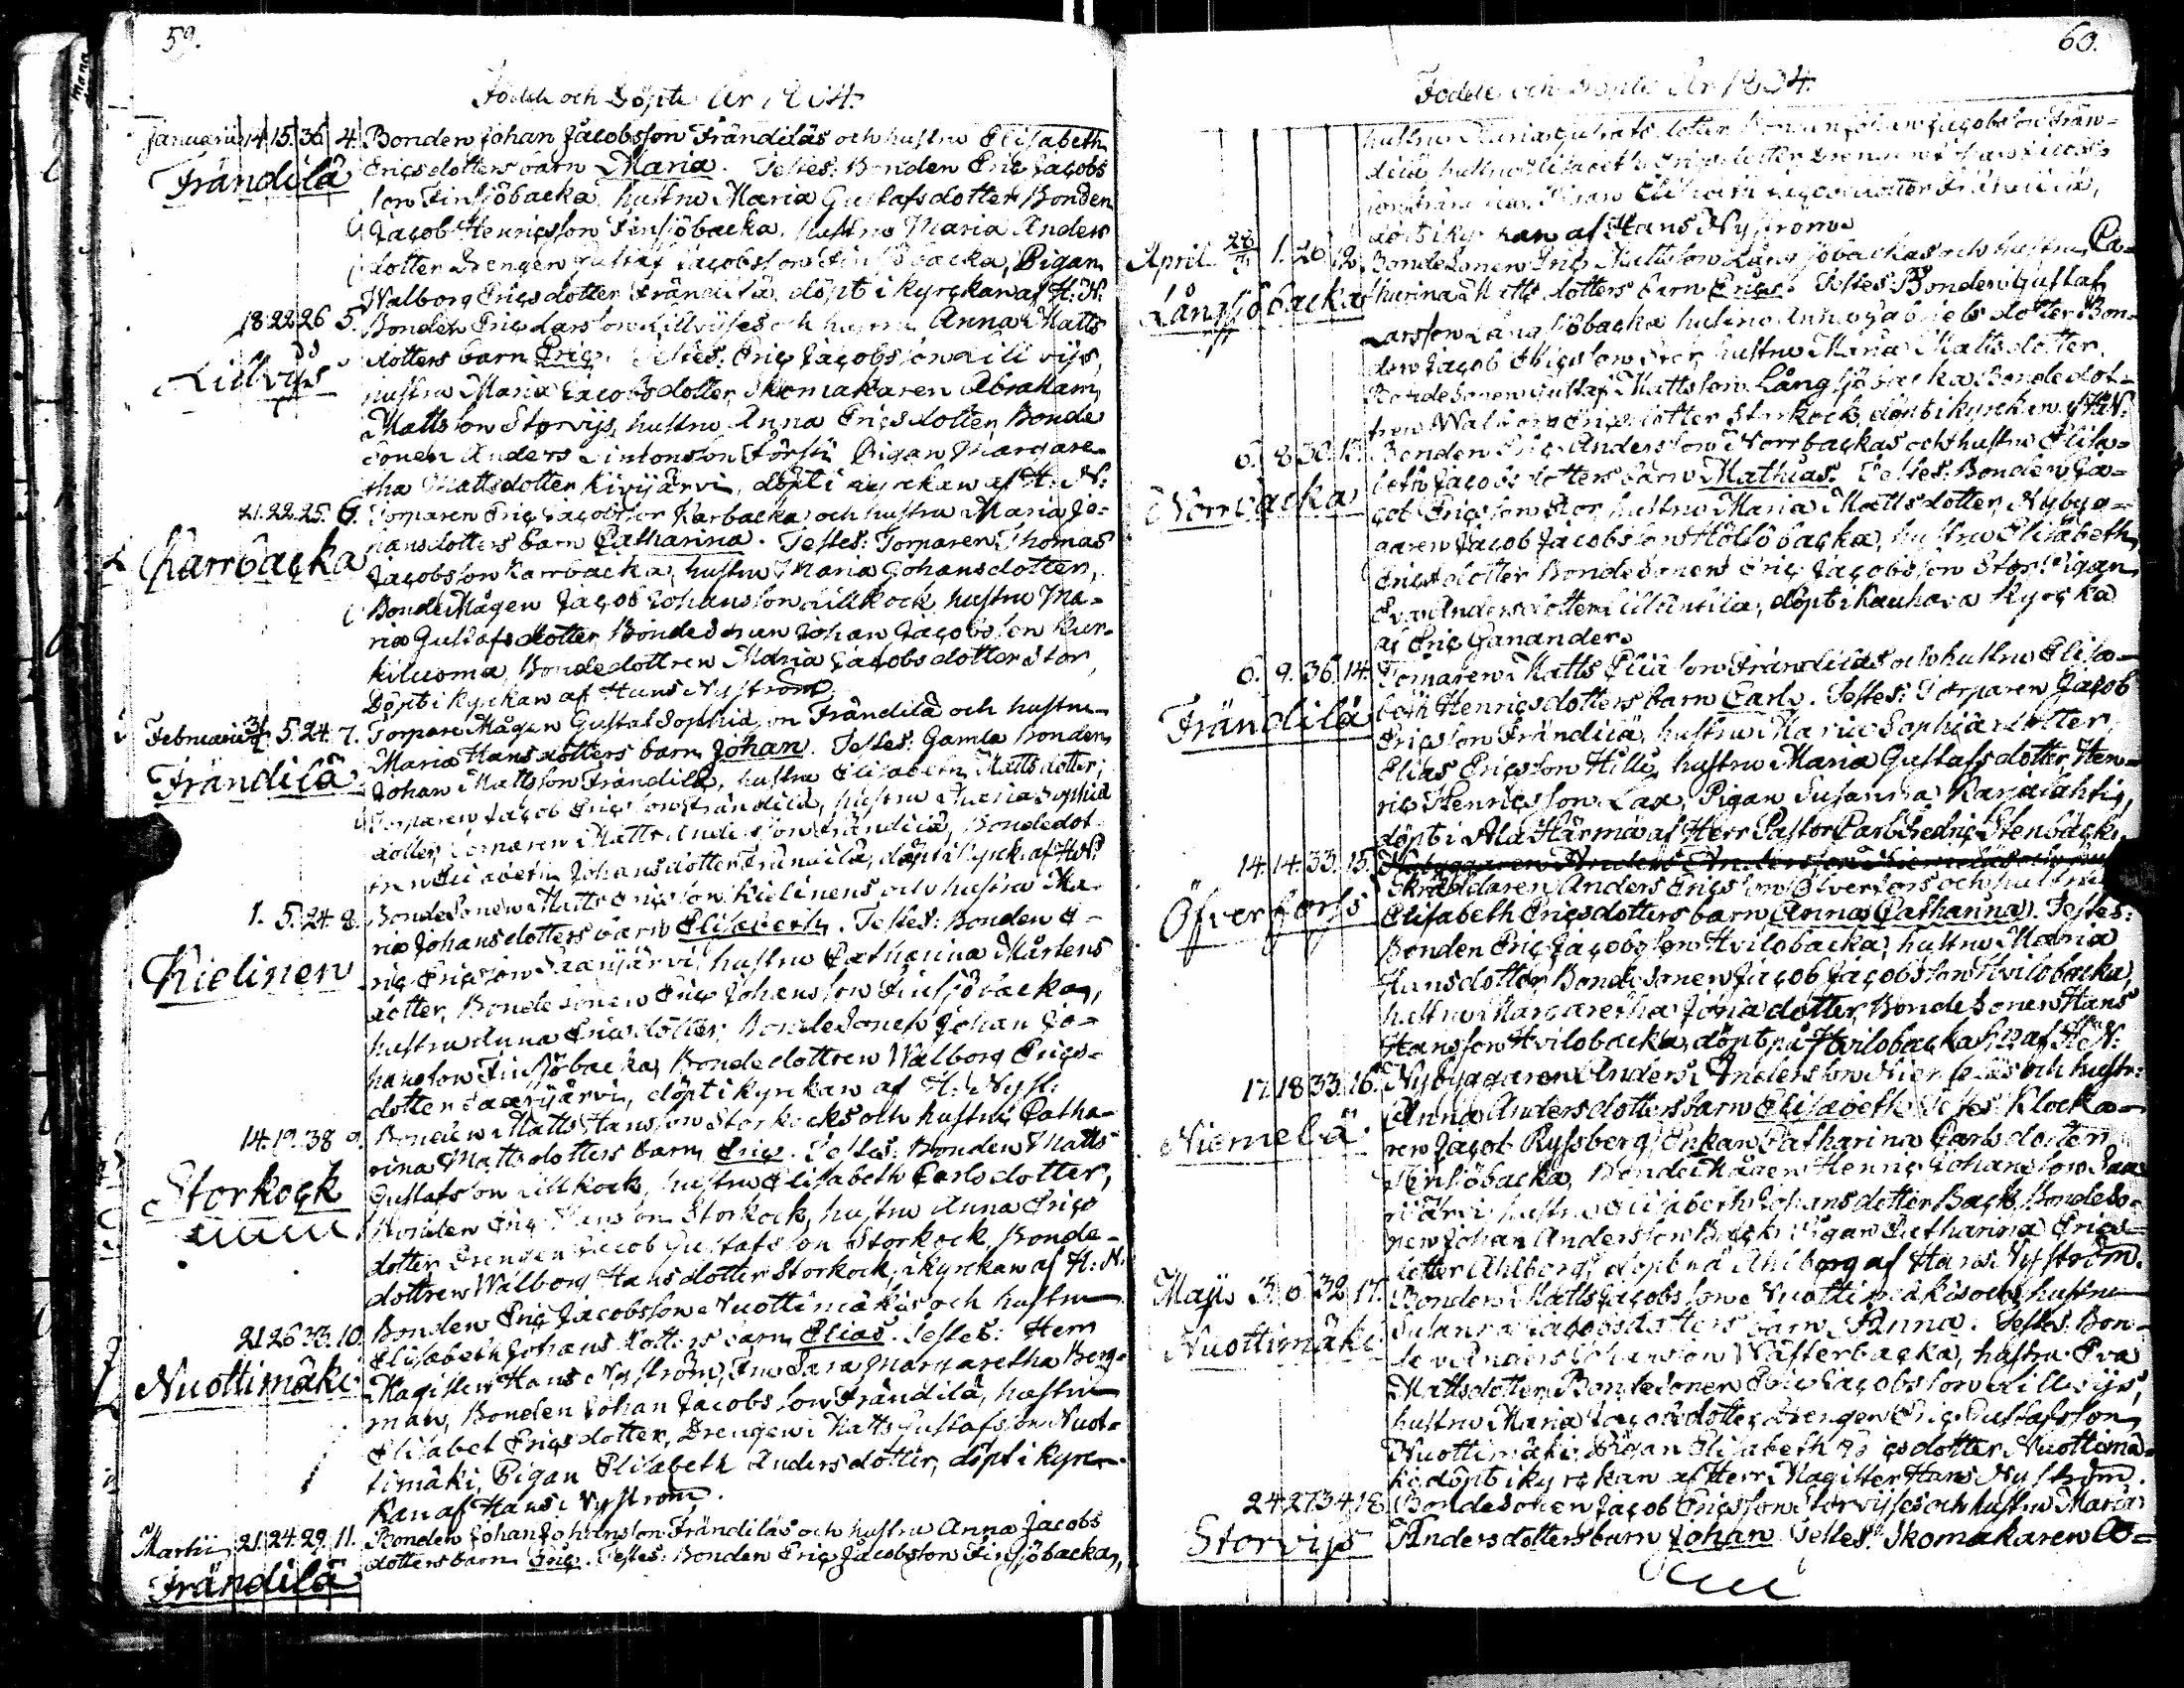 59.
Födde och Döpte År 1804.
Januarii 14 15. 36 4. Bonden Johan Jacobsson Frändiläs och hustru Elisabeth
Frändilä Ericsdotters barn Maria. Testes: Bonden Eric Jacobs
son Finsjöbacka, hustru Maria Gustafsdotter, Bonden
Jacob Henricsson Finsjöbacka, hustru Maria Anders
dotter, Drengen Gustaf Jacobsson Finsjöbacka, Pigan
Walborg Ericsdotter Frändilä, döpt i kyrckan af H: N:
18 22 26 5. Bonden Eric Larsson Lillvijses och hustru Anna Matts
Lillvijs dotters barn Eric. Testes: Eric Jacobsson Lillvijs,
hustru Maria Jacobsdotter, Skomakaren Abraham
Mattsson Storvijs, hustru Anna Ericsdotter, Bonde
Sonen Anders Sintonson Försti, Pigan Margare-
tha Mattsdotter Kivijärvi, döpt i kyrckan af H: N:
21. 22. 25. 6. Torparen Eric Jacobsson Karbacka och hustru Maria Jo-
Karrbacka hansdotters barn Catharina. Testes: Torparen Thomas
Jacobsson Karrbacka, hustru Maria Johansdotter,
BondeMågen Jacob Johansson Lillkock, hustru Ma-
ria Gustafsdotter, BondeSonen Johan Jacobsson Kur-
kiluoma, Bondedottren Maria Jacobsdotter Stor,
Döpt i kyrckan af Hans Nyström.
Februarii 31/1 5. 24. 7. TorpareMågen Gustaf Sophiason Frändilä och hustru
Frändilä Maria Hansdotters barn Johan. Testes: Gamla Bonden
Johan Mattsson Frändilä, hustru Elisabeth Mattsdotter,
Torparen Jacob Ericsson Frändilä, hustru Maria Sophia
dotter, Torparen Matts Andersson Frändilä, Bondedot
tren Elisabeth Johansdotter Frändilä, döpt i kyrck. af H. N:
1. 5. 24. 8. BondeSonen Matts Ericsson Kielinens och hustru Ma-
Kielinen ria Johansdotters barn Elisabeth. Testes: Bonden E-
ric Ericsson Saarijärvi, hustru Catharina Mårtens
dotter, BondeSonen Eric Johansson Finsjöbacka,
hustru Anna Ericsdotter, BondeSonen Johan Jo-
hansson Finsjöbacka, Bondedottren Walborg Erics-
dotter Saarijärvi, döpt i kyrckan af H: Nyst:
14. 19. 38 9. Bonden Matts Hansson Storkocks och hustru Catha-
Storkock rina Mattsdotters barn Eric. Testes: Bonden Matts
Gustafsson Lillkock, hustru Elisabeth Carlsdotter,
Bonden Eric Hansson Storkock, hustru Anna Erics
dotter, Drengen Jacob Gustafsson Storkock, Bonde-
dottren Walborg Hansdotter Storkock, i kyrckan af H: N:
21 26 33. 10. Bonden Eric Jacobsson Nuottimäkis och hustru
Nuottimäki Elisabeth Johansdotters barn Elias. Testes: Herr
Magister Hans Nyström, Fru Sara Margaretha Berg-
man, Bonden Johan Jacobsson Frändilä, hustru
Elisabet Ericsdotter, Drengen Matts Gustafsson Nuot-
timäki, Pigan Elisabeth Andersdotter, döpt i kyrc-
kan af Hans Nyström.
Martii 21. 24. 29. 11. Bonden Johan Johansson Frändiläs och hustru Anna Jacobs
Frändilä dotters barn Eric. Testes: Bonden Eric Jacobsson Finsjöbacka,
60.
Födde och Döpte År 1804.
hustru Maria Gustafsdotter, Bonden Johan Jacobsson Frän-
dilä, hustru Elisabeth Ericsdotter, Drengen
Pigan Elisabeth Jacobsdotter Frändilä,
döpt i kyrckan af Hans Nyström.
April 1. 20 12. BondeSonen Eric Mattsson Långsjöbackas och hustru Ca-
Långsjöbacka tharina Mattsdotters barn Eric. Testes: Bonden Gustaf
Larsson Långsjöbacka, hustru Anna Gabrielsdotter, Bon-
den Jacob Ericsson Stor, hustru Maria Mattsdotter,
BondeSonen Gustaf Mattsson Långsjöbacka, Bondedot-
tren Walborg Ericsdotter Storkock, döpt i kyrckan af H: N:
6. 8 30. 13. Bonden Eric Andersson Norrbackas och hustru Elisa-
Norrbacka beth Jacobsdotters barn Mathias. Testes: Bonden Ja-
cob Ericsson Stor, hustru Maria Mattsdotter, Nybyg-
garen Jacob Jacobsson Höllöbacka, hustru Elisabeth
Ericsdotter, BondeSonen Eric Jacobsson Stor, Pigan
Eva Andersdotter Lillantila, döpt i Kauhava Kyrcka
af Eric Gananders.
6. 9. 36. 14. Torparen Matts Eliasson Frändiläs och hustru Elisa-
Frändilä beth Henricsdotters barn Carl. Testes: Torparen Jacob
Ericsson Frändilä, hustru Maria Sophiædotter,
Elias Ericsson Hilli, hustru Maria Gustafsdotter, Hen-
ric Henricsson Lax, Pigan Susanna Karjalahti,
döpt i Ala Härmä af Herr Pastor Carl Fredric Stenbäck.
14. 14. 33. 15. Nybyggaren Anders Andersson Niemeläs och hust
Öfverfors Skräddaren Anders Ericsson Öfverfors och hustru
Elisabeth Ericsdotters barn Anna Catharina. Testes:
Bonden Eric Jacobsson Hvilobacka, hustru Maria
Hansdotter, BondeSonen Jacob Jacobsson Hvilobacka,
hustru Margaretha Joriædotter, BondeSonen Hans
Hansson Hvilobacka, döpt på Hvilobacka af H: N:
17 18 33. 16. Nybyggaren Anders Andersson Niemeläs och hustru
Niemelä Anna Andersdotters barn Elisabeth. Testes: Klocka-
ren Jacob Ryssberg, Enkan Catharina Carlsdotter
Finsjöbacka, BondeMågen Henric Johansson Saa
rijärvi, hustru Elisabeth Johansdotter Back, BondeSo-
nen Johan Andersson Back, Pigan Catharina Erics-
dotter Ahlborg, döpt på Ahlborg af Hans Nyström.
Maji 3. 6 32 17. Bonden Matts Jacobsson Nuottimäkis och hustru
Nuottimäki Susanna Jacobsdotters barn Anna. Testes: Bon-
den Anders Johansson Wästerbacka, hustru Eva
Mattsdotter, BondeSonen Eric Jacobsson Lillvijs,
hustru Maria Jacobsdotter, Drengen Eric Gustafsson
Nuottimäki, Pigan Elisabeth Ericsdotter Nuottimä-
ki, döpt i kyrckan af Herr Magister Hans Nyström.
24. 27 34. 18. BondeSonen Jacob Ericsson Storvijses och hustru Maria
Storvijs Andersdotters barn Johan. Testes: Skomakaren A-